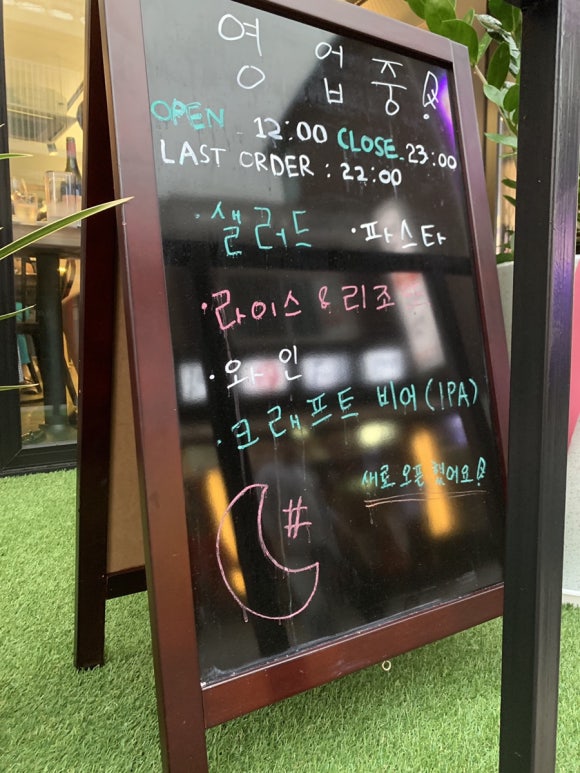 영업중!
OPEN 12:00 CLOSE 23:00
LAST ORDER : 22:00
· 샐러드 · 파스타
· 라이스 & 리조
· 와인
· 크래프트 비어 (IPA)
새로 오픈했어요!
#